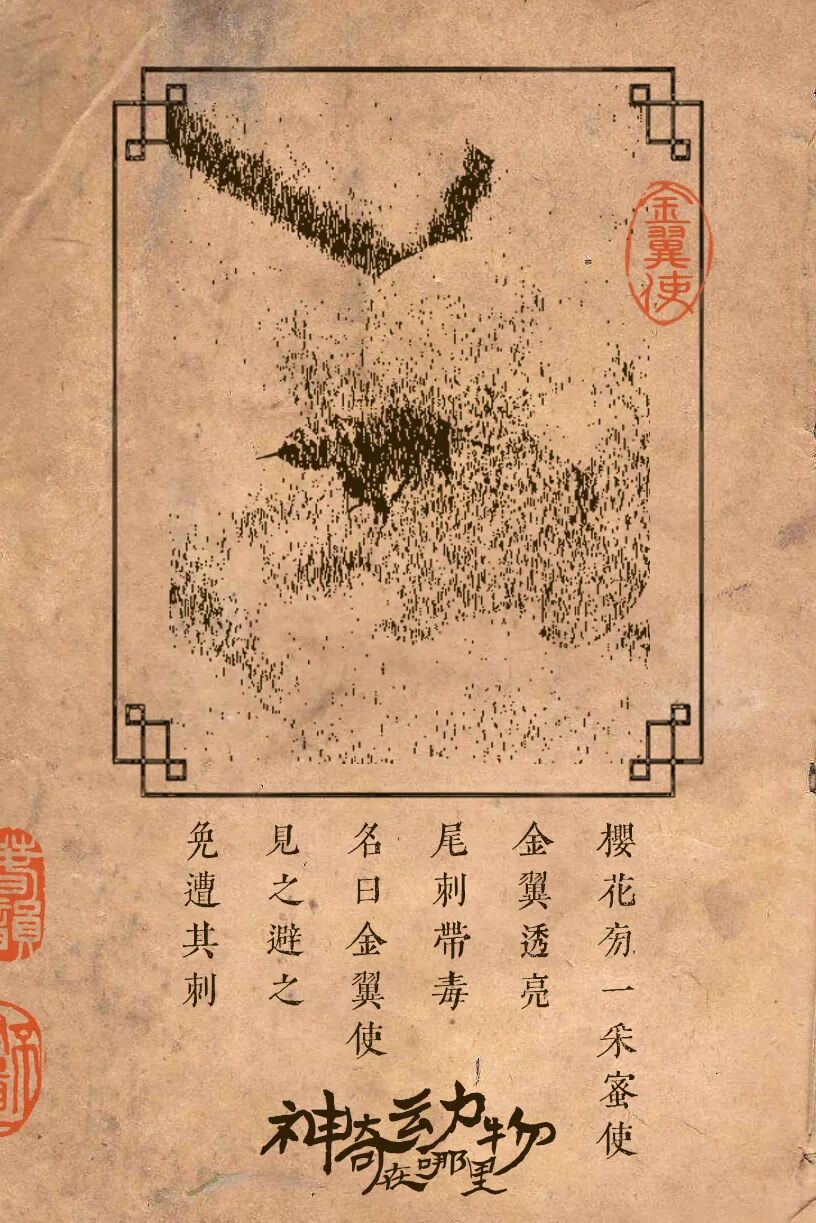 金翼使
櫻花旁一采蜜使
金翼透亮
尾刺帶毒
名曰金翼使
見之避之
免遭其刺
神奇动物
在哪里